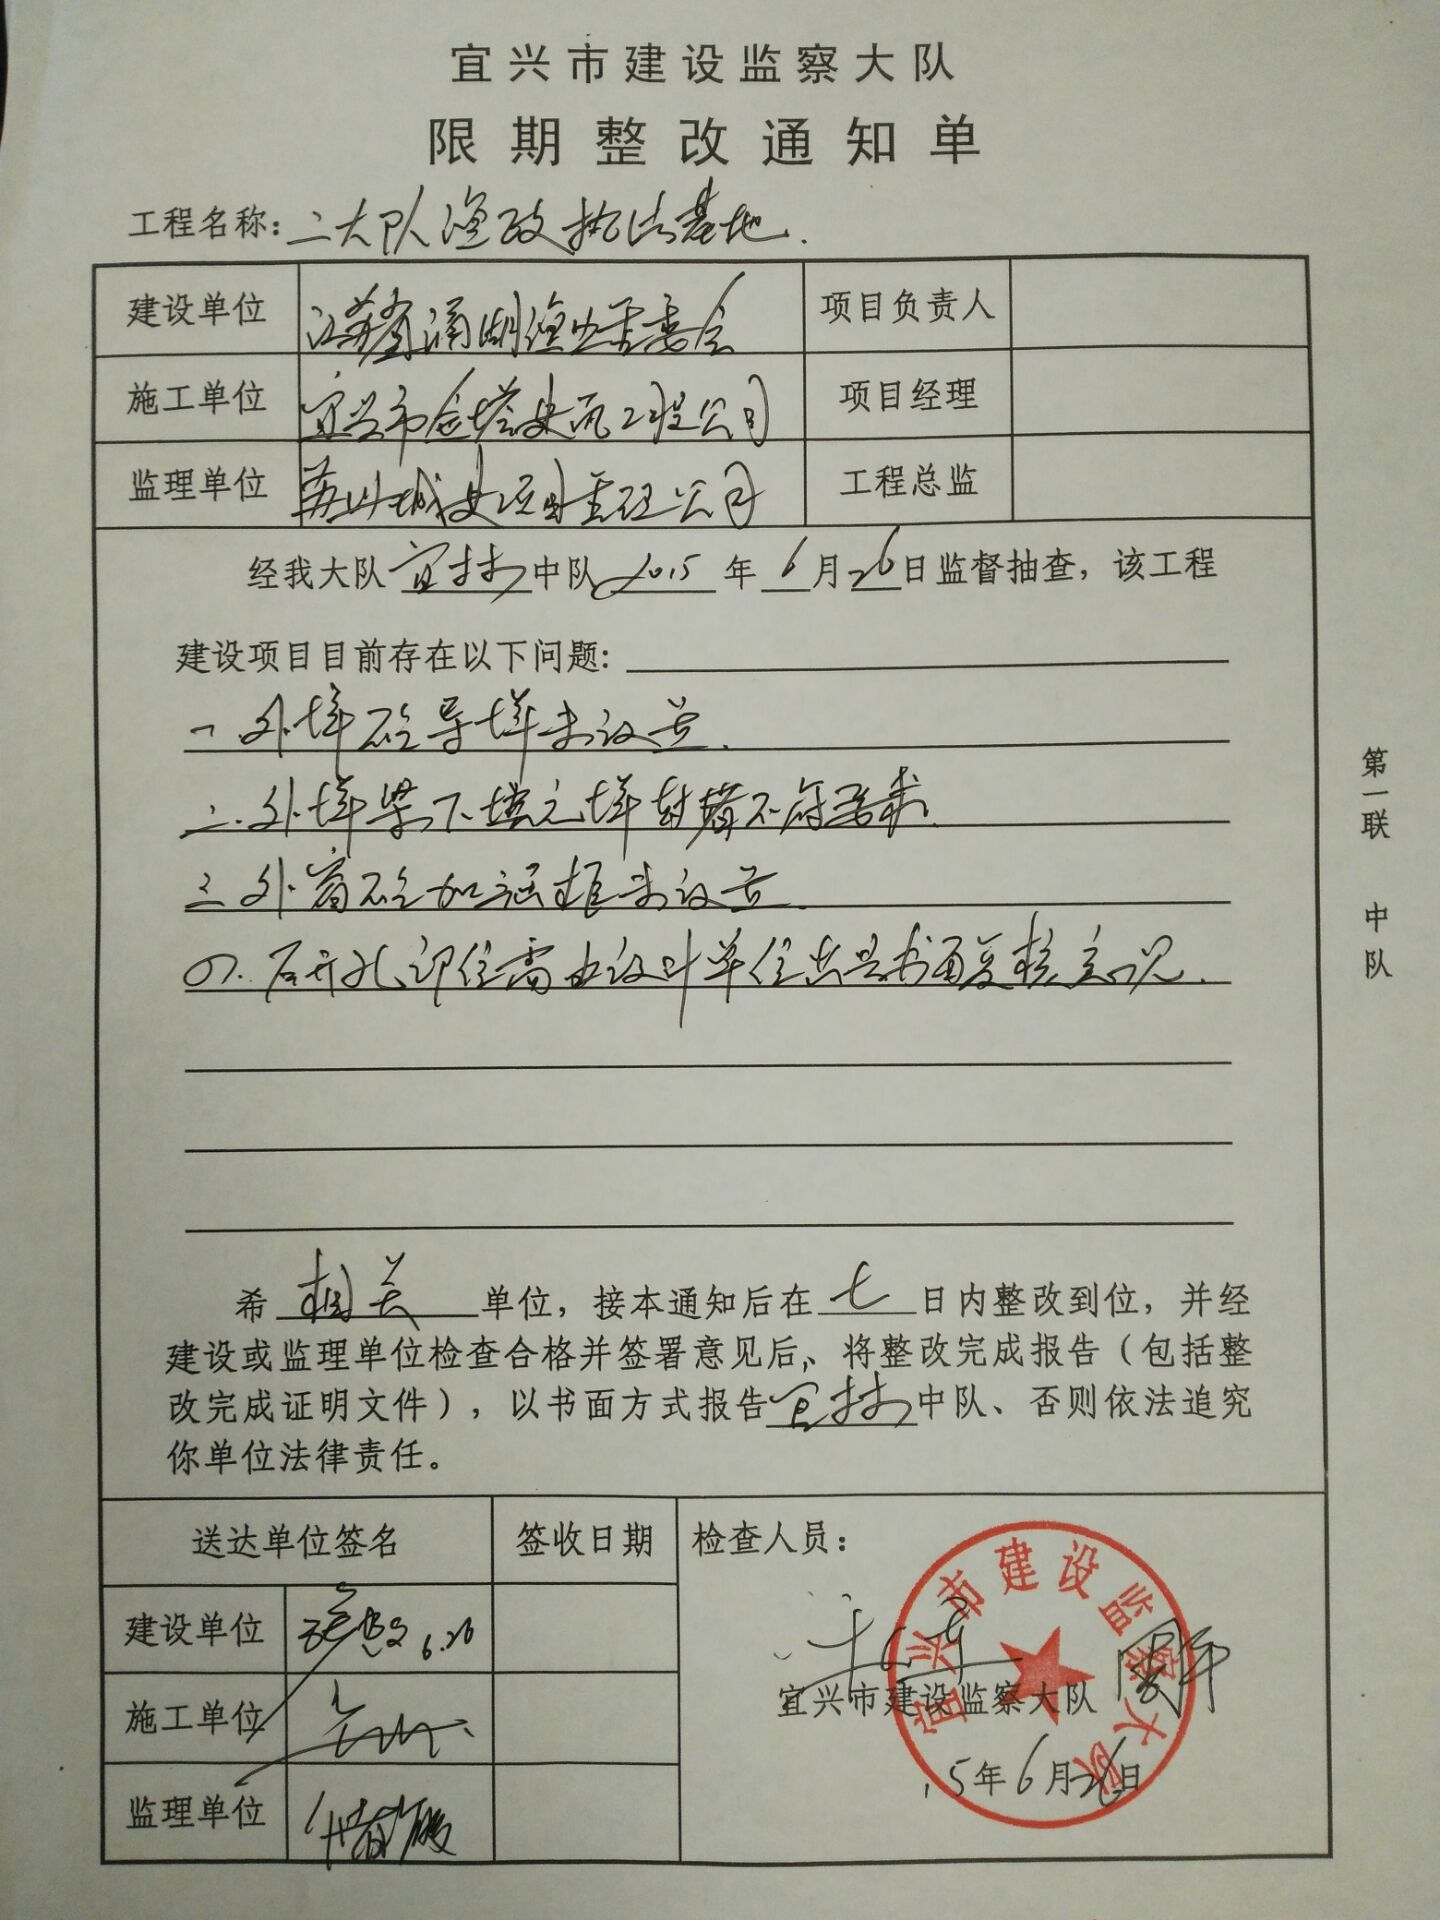 宜兴市建设监察大队
限期整改通知单
工程名称：二大队渔政执法基地.
建设单位 江苏省滆湖渔业管委会 项目负责人
施工单位 宜兴市金塔建筑工程公司 项目经理
监理单位 苏州城建项目监理公司 工程总监
经我大队宜城中队2015年6月26日监督抽查，该工程
建设项目目前存在以下问题：
一.外墙砼导墙未设置.
二.外墙梁下填充墙封堵不符要求.
三.外窗砼加强框未设置.
四.后开孔部位需由设计单位出具书面复核意见.
希相关单位，接本通知后在七日内整改到位，并经
建设或监理单位检查合格并签署意见后，、将整改完成报告（包括整
改完成证明文件），以书面方式报告中队、否则依法追究
你单位法律责任。
第一联 中队
送达单位签名 签收日期 检查人员：
建设单位 6.26
施工单位
监理单位
宜兴市建设监察大队
15年6月26日
宜兴市建设监察大队